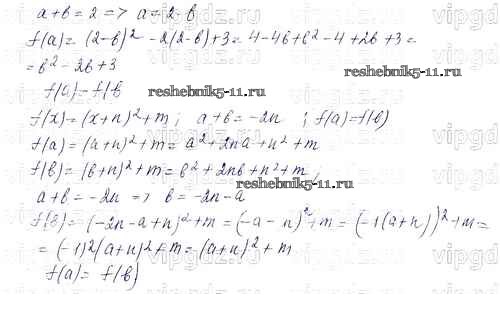 a+в=2 => a=2-в
f(a)=(2-в)²-2(2-в)+3=4-4в+в²-4+2в+3=
=в²-2в+3
f(a)=f(в
f(x)=(x+n)²+m; a+в=-2n; f(a)=f(в)
f(a)=(a+n)²+m=a²+2na+n²+m
f(в)=(в+n)²+m=в²+2nв+n²+m,
a+в=-2n => в=-2n-a
f(в)=(-2n-a+n)²+m=(-a-n)²+m=(-1(a+n))²+m=
=(-1)²(a+n)²+m=(a+n)²+m
f(a)=f(в)
reshebnik5-11.ru
reshebnik5-11.ru
reshebnik5-11.ru